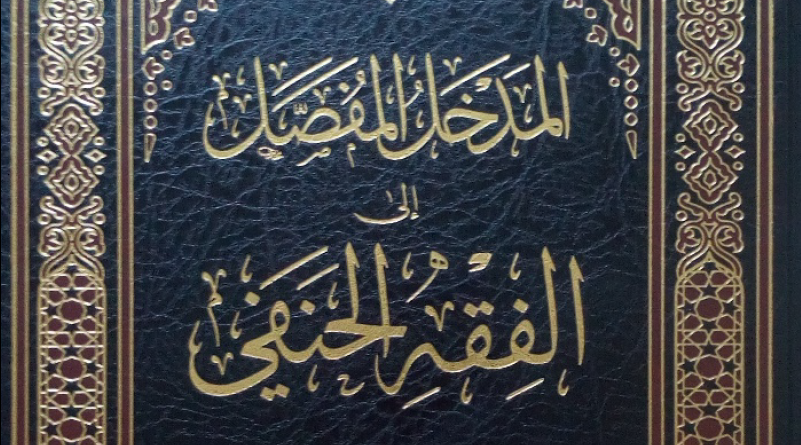 المَدْخَلُ المُفَصَّل
إلى
الفِقْهِ الحَنَفي